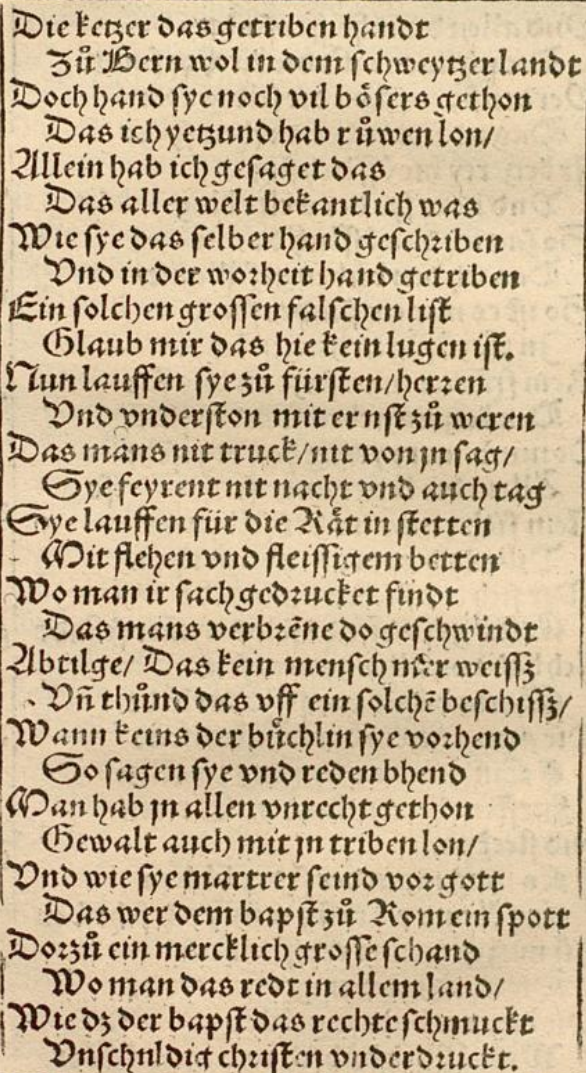 Die ketzer das getriben handt
Zů Bern wol in dem schweytzer landt
Doch hand sye noch vil bôsers gethon
Das ich yetzund hab růwen lon/
Allein hab ich gesaget das
Das aller welt bekantlich was
Wie sye das selber hand geschriben
Vnd in der worheit hand getriben
Ein solchen grossen falschen list
Glaub mir das hie kein lugen ist.
Nun lauffen sye zů fürsten/herren
Vnd vnderston mit ernst zů weren
Das mans nit truck/nit von jn sag/
Sye feyrent nit nacht vnd auch tag
Sye lauffen für die Rät in stetten
Mit flehen vnd fleissigem betten
Wo man ir sach gedrucket findt
Das mans verbrēne do geschwindt
Abtilge/ Das kein mensch mer weissz
Vñ thůnd das vff ein solchē beschissz/
Wann keins der bůchlin sye vorhend
So sagen sye vnd reden bhend
Man hab jn allen vnrecht gethon
Gewalt auch mit jn triben lon/
Vnd wie sye martrer seind vor gott
Das wer dem bapst zů Rom ein spott
Dorzů ein mercklich grosse schand
Wo man das redt in allem land/
Wie dz der bapst das rechte schmuckt
Vnschuldig christen vnderdruckt.